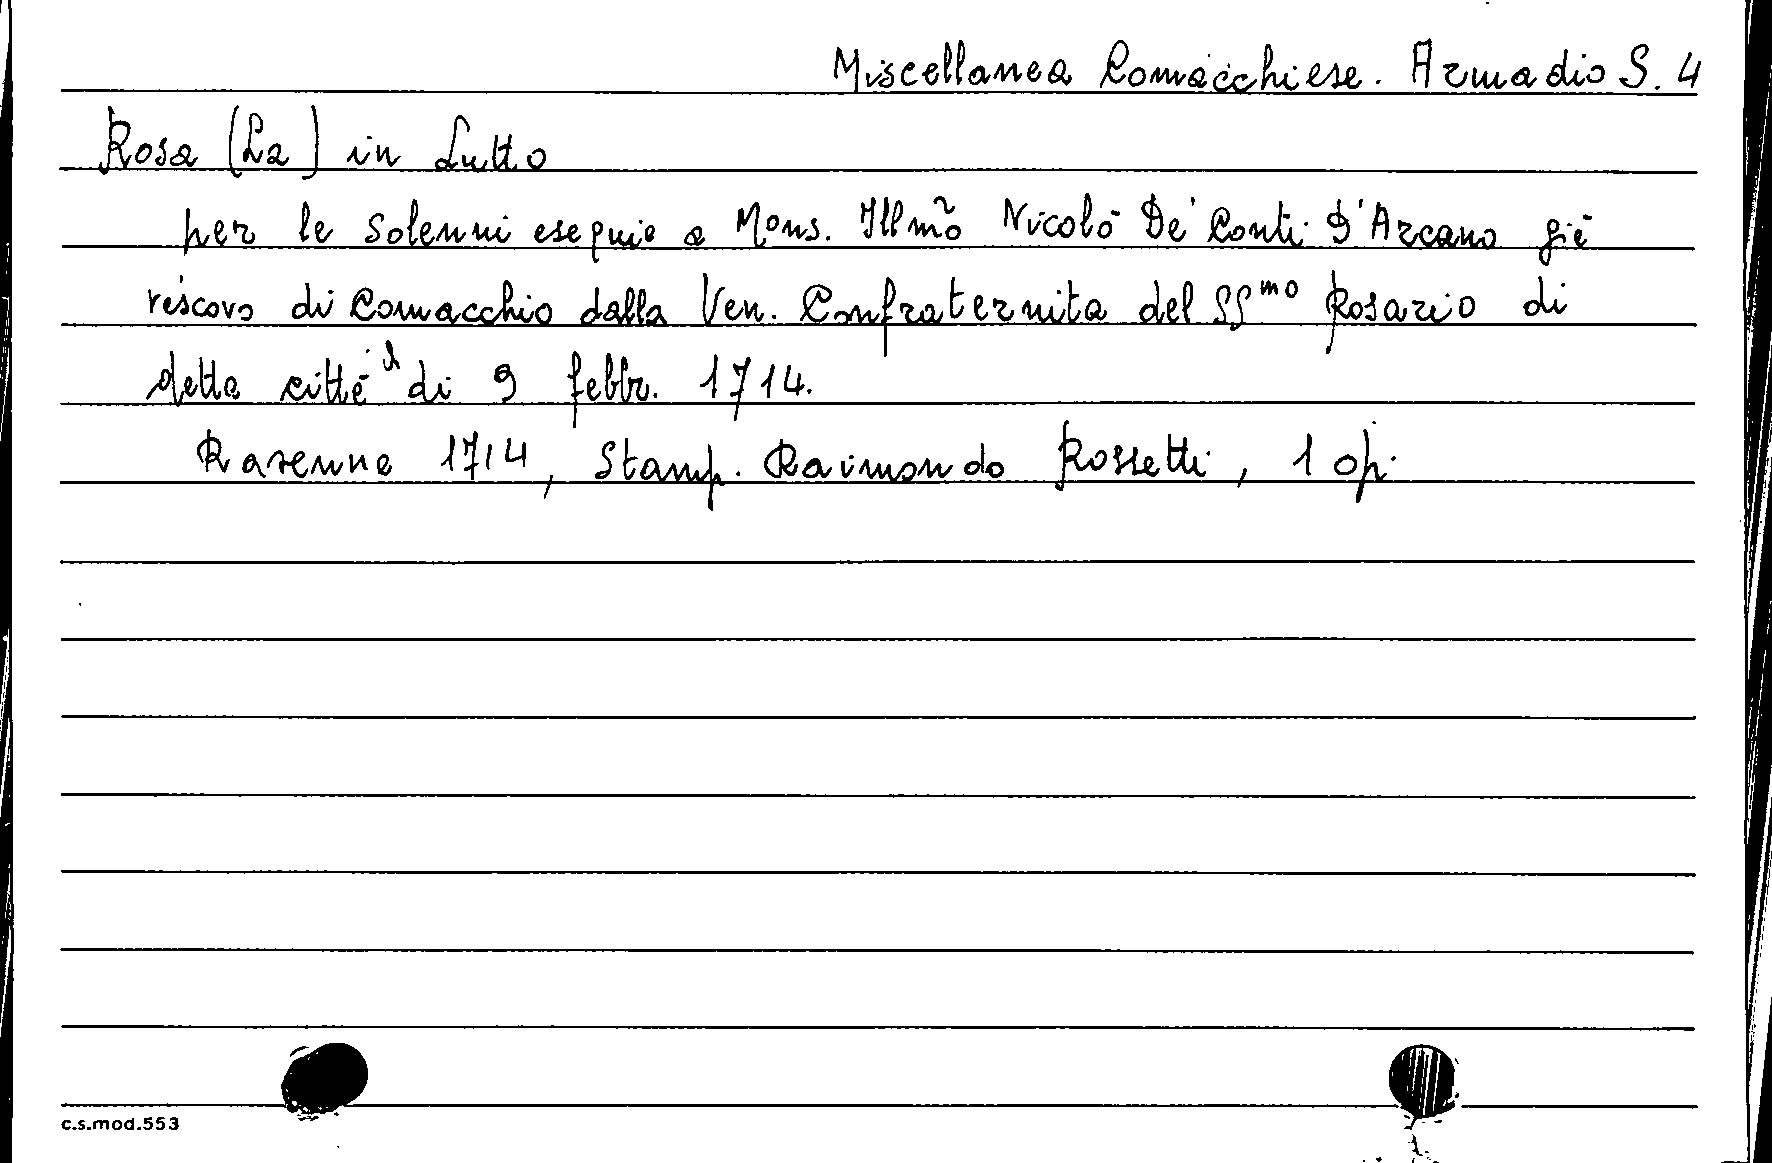 Miscellanea Comacchiese. Armadio S. 4
Rosa (La) in Lutto
per le solenni esequie a Mons. Illmõ Nicolò De' Conti D'Arcano già
vescovo di Comacchio dalla Ven. Confraternita del SSmo Rosario di
detta città di 9 febbr. 1714.
Ravenna 1714, Stamp. Raimondo Rossetti, 1 op.
c.s.mod.553